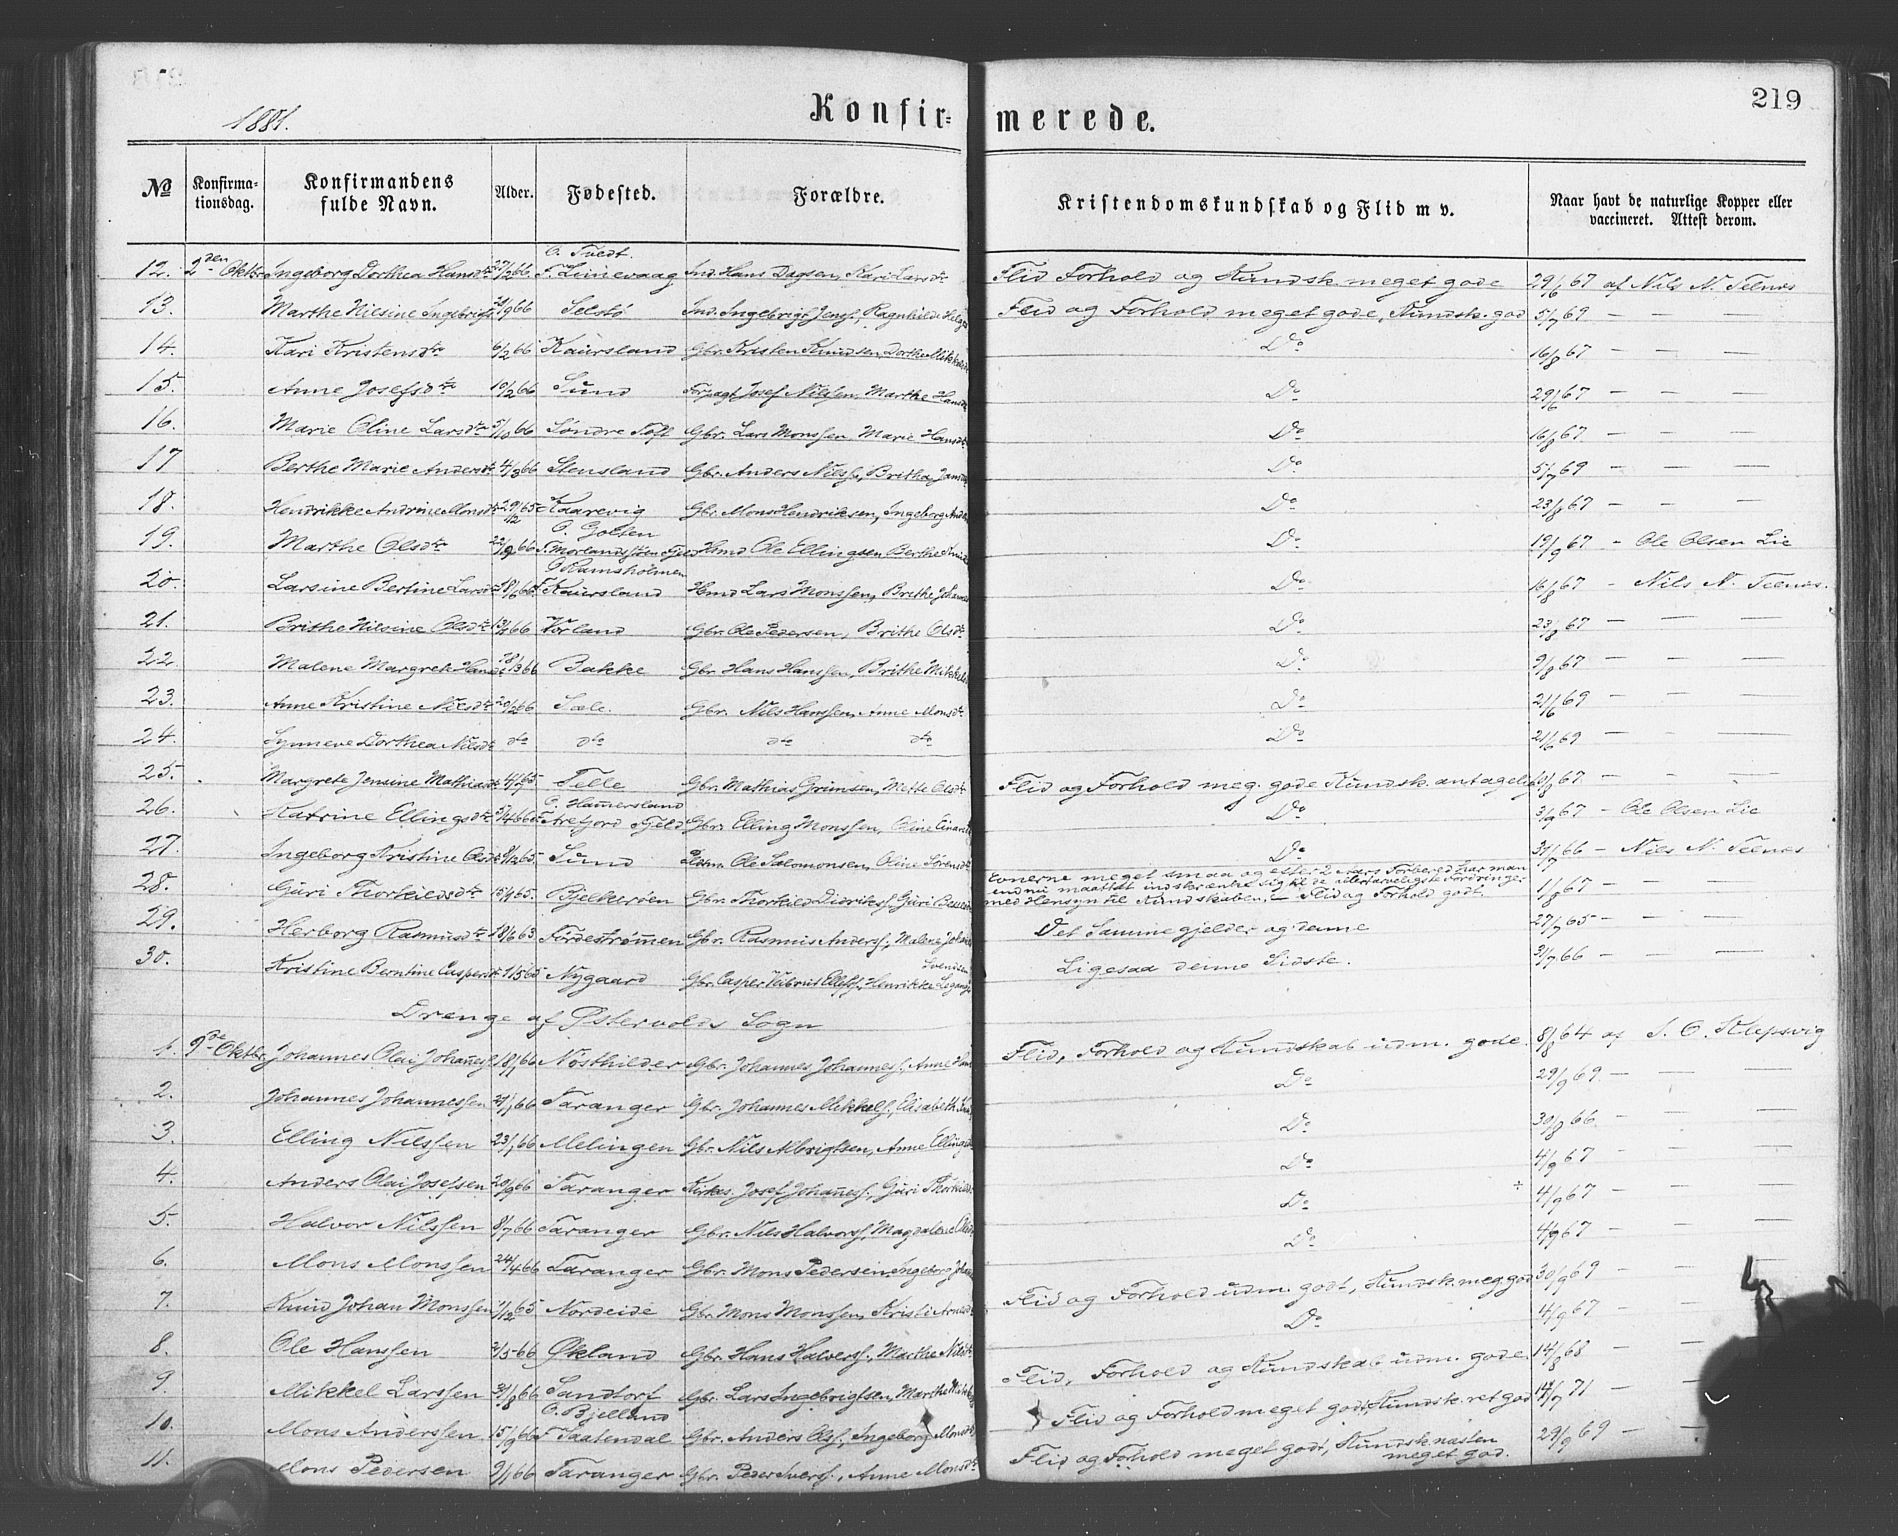 1881.
Konfir- merede. 219
№ Konfirmationsdag. Konfirmandens fulde Navn. Alder. Fødested. Forældre. Kristendomskundskab og Flid m v. Naar havt de naturlige Kopper eller vaccineret. Attest derom.
O. Tvedt.
12. 2den Oktbr. Ingeborg Dorthea Hansdtr 66 F. Lunevaag Ind. Hans Dagsen, Kari Larsdtr Flid Forhold og Kundsk. meget gode 29/6 67 af Nils N. Telnæs
13. Marthe Nilsine Ingebrigts 66 Selstø Ind. Ingebrigt Jens., Ragnhilde Helges Flid og Forhold meget gode, Kundsk. god 5/7 69 — — —
14. Kari Kristensdtr 6/2 66 Kaursland Gbr. Kristen Knudsen, Dorthe Mikkels Do 16/8 67 — — —
15. Anne Josefsdtr 10/2 66 Sund Forpagt. Josef Nilssen, Marthe Hansdtr Do 29/6 67 — — —
16. Marie Oline Larsdtr 66 Søndre Toft Gbr. Lars Monssen, Marie Hansdtr Do 16/8 67 — — —
17 Berthe Marie Andersdtr 4/8 66 Stensland Gbr. Anders Nilss., Britha Do 5/7 69 — — —
18. Hendrikke Andrine Monsdtr 29/12 65 Kaarevig Gbr. Mons Hendriksen, Ingeborg Do 23/8 67 — —
O. Golten
19. Marthe Olsdtr 22/9 66 F. Morlandstøen Fjeld Hmd Ole Ellingsen Berthe Do 19/9 67 - Ole Olsen Lie
O. Ramsholmen
20. Larsine Bertine Larsdtr 18/6 66 F. Kaursland Hmd Lars Monssen, Brithe Johannes Do 16/8 67 - Nils N. Telnæs.
21. Brithe Nilsine Olsdtr 66 Vorland Gbr. Ole Pedersen, Brithe Olsdtr Do 23/8 67 — —
22. Malene Margrete Hansd 18/3 66 Bakke Gbr. Hans Hanssen, Brithe Mikkels Do 9/8 67 — — —
23. Anne Kristine Nilsdtr 20/2 66 Sæle. Gbr. Nils Hanssen, Anne Monsdtr Do 21/6 69 — — —
24. Synneve Dorthea Nilsdtr dto dto dto dto Do 21/6 69 — — —
25. Margrete Jensine Mathiasdtr 65. Telle Gbr. Mathias Grimsen, Mette Olsdtr Flid og Forhold meg. gode Kundsk. antagelig 67 — — —
O. Hammersland
26. Katrine Ellingsdtr 5/4 66 F. Trefjord Fjeld Gbr. Elling Monssen, Oline Einars Do 3/9 67 - Ole Olsen Lie
27. Ingeborg Kristine Olsdtr 8/12 65. Sund Ole Salomonsen, Oline Sørensdtr Do 31/7 66 - Nils N. Telnæs
28. Guri Thorkildsdtr 65. Bjelkerøen Gbr. Thorkild Didriks., Guri Evnerne meget smaa og efter 2 Aars Forbered. har man
endnu maattet indskrænke sig til de allertarveligste Fordringer
med Hensyn til Kundskaben. — Flid og Forhold godt. 1/8 67 — — —
29. Herborg Rasmusdtr 18/6 63 Førdestrømmen Gbr. Rasmus Anders., Malene Johan Det Samme gjelder og denne 27/7 65 — — —
Svendsen
30. Kristine Berntine Caspersdtr 65 Nygaard Gbr. Casper Ellefs., Henrikke Ligesaa denne Sidste. 31/7 66 — — —
Drenge af Østervolds Sogn
1. 9de Oktbr. Johannes Olai Johannes. 18/1 66 Nøsthilder Gbr. Johannes Johanness., Anne Hans Flid, Forhold og Kundskab udm. gode. 8/8 64 af S. O. Klepsvig
2. Johannes Johannessen 66 Taranger Gbr. Johannes Mikkels., Elisabeth Do 29/9 69. — — —
3. Elling Nilssen 23/1 66 Melingen Gbr. Nils Albrigtsen, Anne Ellingsd Do 30/8 66. — — —
4. Anders Olai Josefsen 20/9 66 Taranger Kirkes. Josef Johanness., Guri Thorkilds Do 4/9 67 — — —
5. Halvor Nilssen 8/7 66 Taranger Gbr. Nils Halvors., Magdalene Do 4/9 67 — — —
6. Mons Monssen 24/4 66 Taranger Gbr. Mons Pedersen, Ingeborg Johan Do 4/9 67 — — —
7. Knud Johan Monssen 65 Nordeide Gbr. Mons Monssen, Kristi Flid og Forhold udm. godt, Kundsk. meg. god 30/9 69 — —
8. Ole Hanssen 2/5 66 Økland Gbr. Hans Halvors., Marthe Nilsdtr Do 4/9 67 — —
9. Mikkel Larssen 31/8 66 Sandtorf Gbr. Lars Ingebrigtsen, Marthe Flid, Forhold og Kundskab udm. gode. 14/8 68 — —
O. Bjelland
10. Mons Anderssen 15/9 66 F. Saatendal Gbr. Anders Ols., Ingeborg Monsdtr Flid og Forhold meget godt, Kundsk. ret god 71 — —
11. Mons Pedersen 9/1 66 Taranger Gbr. Peder Ivers., Anne Monsdtr Flid og Forhold meget godt, Kundsk. næsten
meget god. 29/9 69 — —